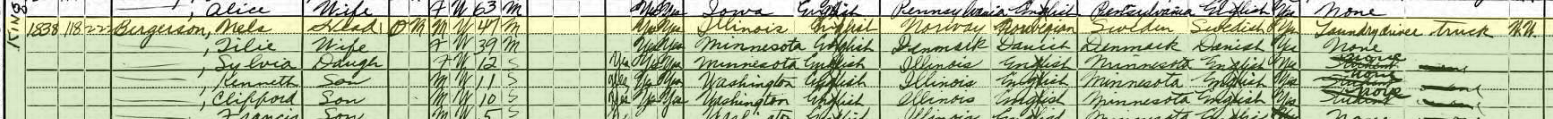 Alice Wife F W 63 M Yes Yes Iowa English Pennsylvania English Pennsylvania English Yes None
1838 118 Bergerson, Nels Head O M W 47 M Yes Yes Illinois English Norway Norwegian Sweden Swedish Yes Laundry driver truck W.W.
Tilie Wife F W 39 M Yes Yes Minnesota English Denmark Danish Denmark Danish Yes None
Sylvia Daugh F W 12 S Yes Yes Yes Minnesota English Illinois English Minnesota English Yes None
Kenneth Son M W 11 S Yes Yes Yes Washington English Illinois English Minnesota English Yes None
Clifford Son M W 10 S Yes Yes Yes Washington English Illinois English Minnesota English Yes None
Francis Son M W 5 S Washington English Illinois English Minnesota English None